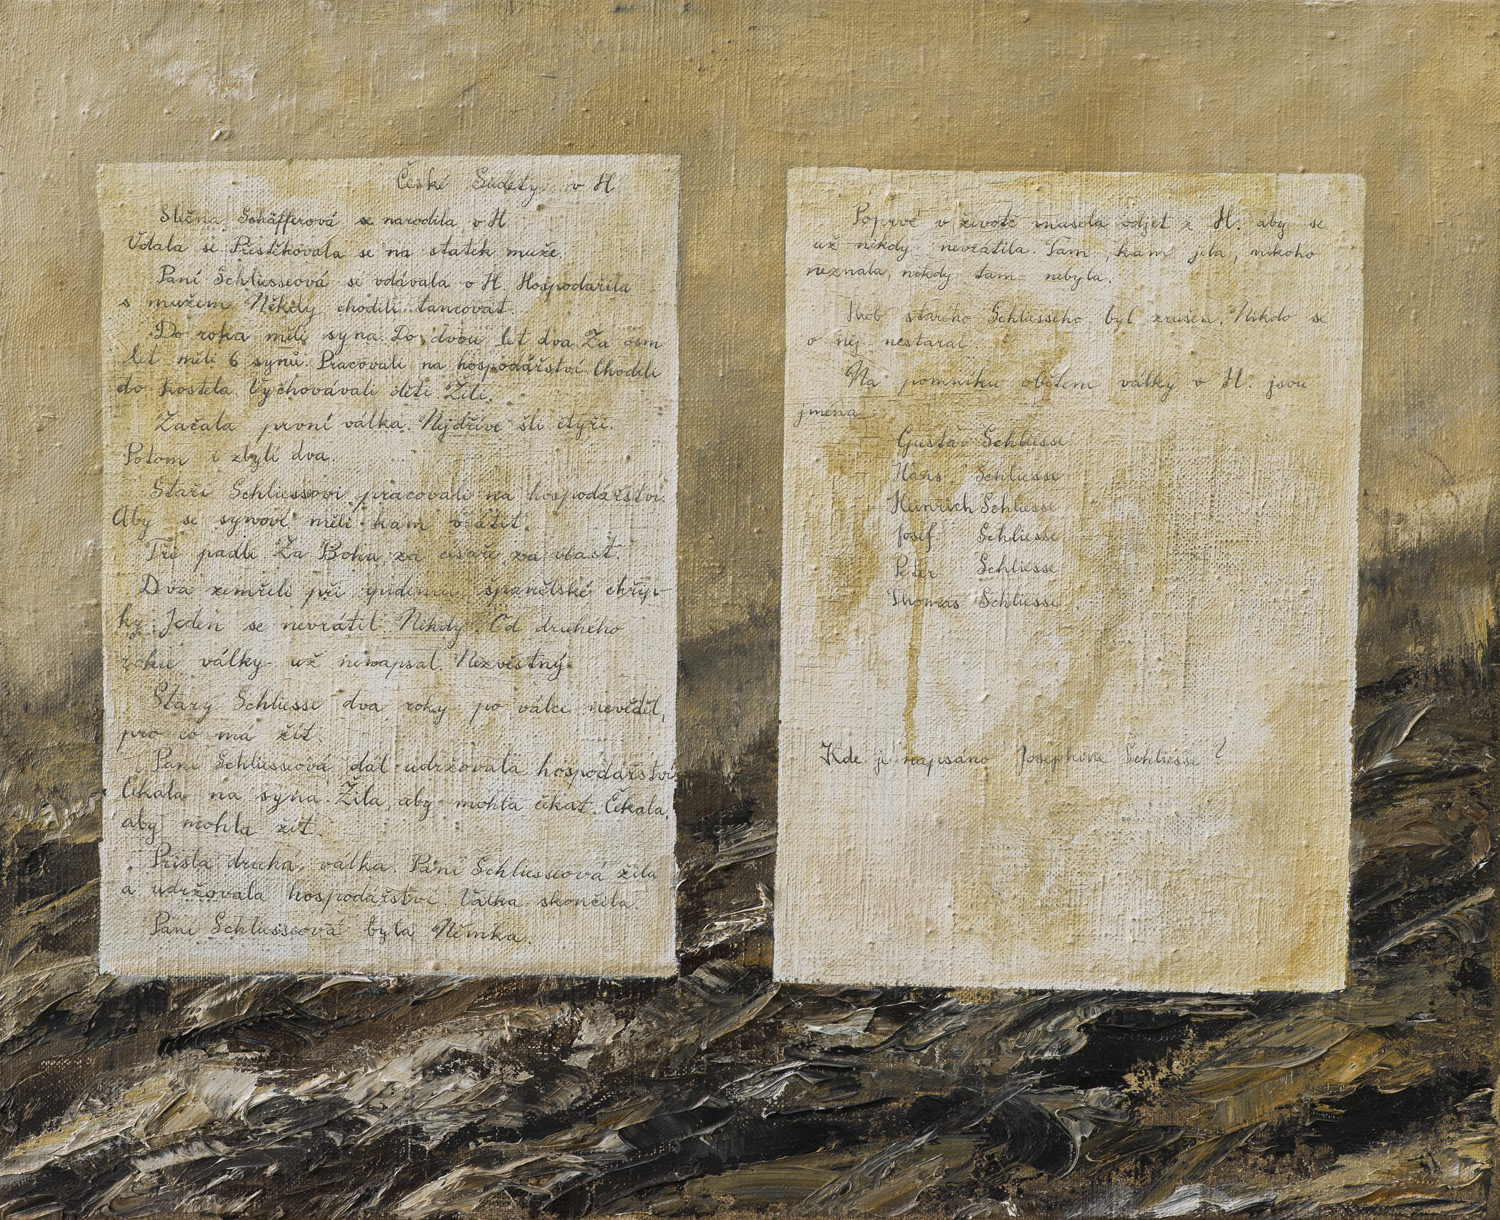 České Sudety, v H.
Slečna Schäfferová se narodila v H
Vdala se. Přestěhovala se na statek muže.
Paní Schliesseová se vdávala v H. Hospodařila
s mužem Někdy chodili tancovat.
Do roka měli syna. Do dvou let dva. Za osm
let měli 6 synů. Pracovali na hospodářství. Chodili
do kostela. Vychovávali děti. Žili.
Začala první válka. Nejdříve šli čtyři.
Potom i zbylí dva.
Staří Schliessovi pracovali na hospodářství.
Aby se synové měli kam vrátit.
Tři padli. Za Boha, za císaře, za vlast.
Dva zemřeli při epidemii španělské chřip-
ky. Jeden se nevrátil Nikdy. Od druhého
roku války už nenapsal. Nezvěstný.
Starý Schliesse dva roky po válce nevěděl,
pro co má žít.
Paní Schliesseová dál udržovala hospodářství.
Čekala na syna. Žila, aby mohla čekat. Čekala,
aby mohla žít.
Přišla druhá válka. Paní Schliesseová žila
a udržovala hospodářství. Válka skončila.
Paní Schliesseová byla Němka.
Poprvé v životě musela odjet z H. aby se
už nikdy nevrátila. Tam, kam jela, nikoho
neznala, nikdy tam nebyla.
Hrob starého Schliesseho byl zrušen. Nikdo se
o něj nestaral.
Na pomníku obětem války v H. jsou
jména:
Gustav Schliesse
Hans Schliesse
Heinrich Schliesse
Josef Schliesse
Peter Schliesse
Thomas Schliesse.
Kde je napsáno Josephina Schliesse?